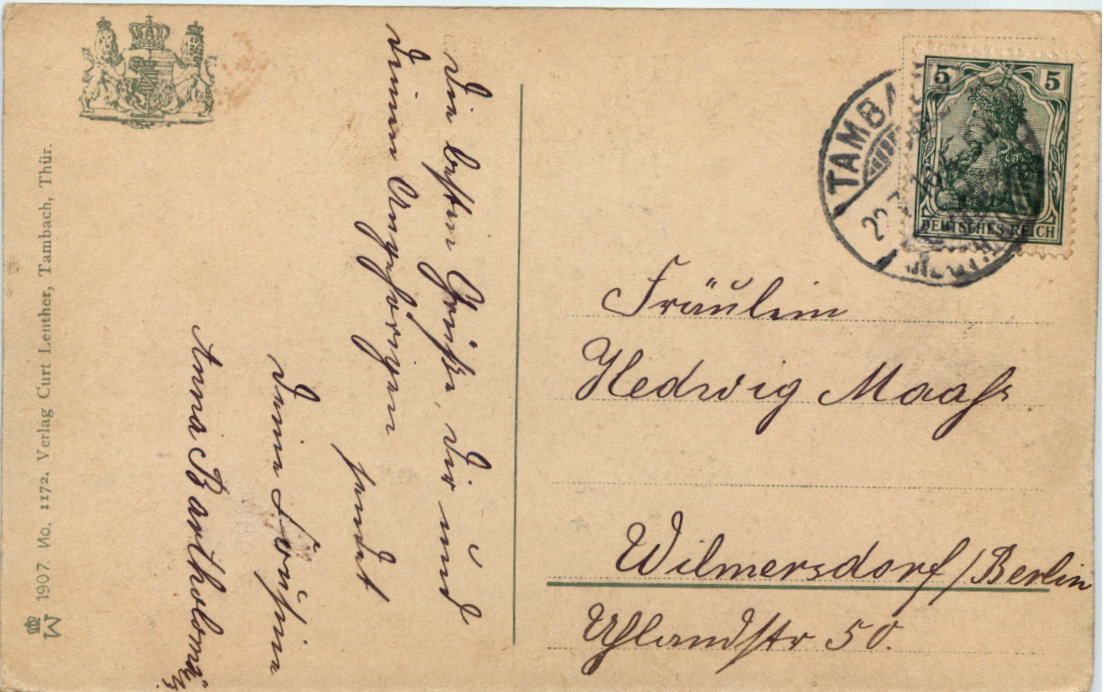 1907. No. 1172. Verlag Curt Leuther, Tambach, Thür.
M
Die besten Grüße, dir und
deinen Angehörigen
sendet
deine Cousine
Anna Bartholomä
5 5
DEUTSCHES REICH
TAMBA
22.7.
Fräulein
Hedwig Maaß
Wilmersdorf/Berlin
Uhlandstr 50.